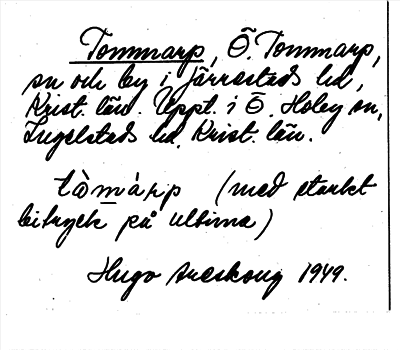 Tommarp, Ö. Tommarp,
sn och by i Järrestads hd,
Krist. län. Uppt. i Ö. Hoby sn,
Ingelstads hd, Krist. län.
tàmárp (med starkt
bitryck på ultima)
Hugo Areskoug 1949.